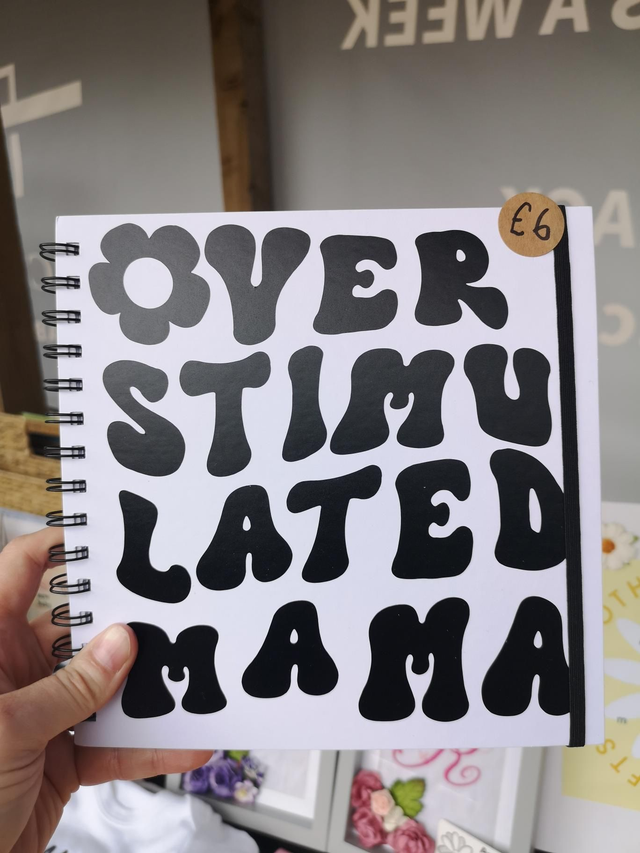 S A WEEK
£6
OVER
STIMU
LATED
MAMA